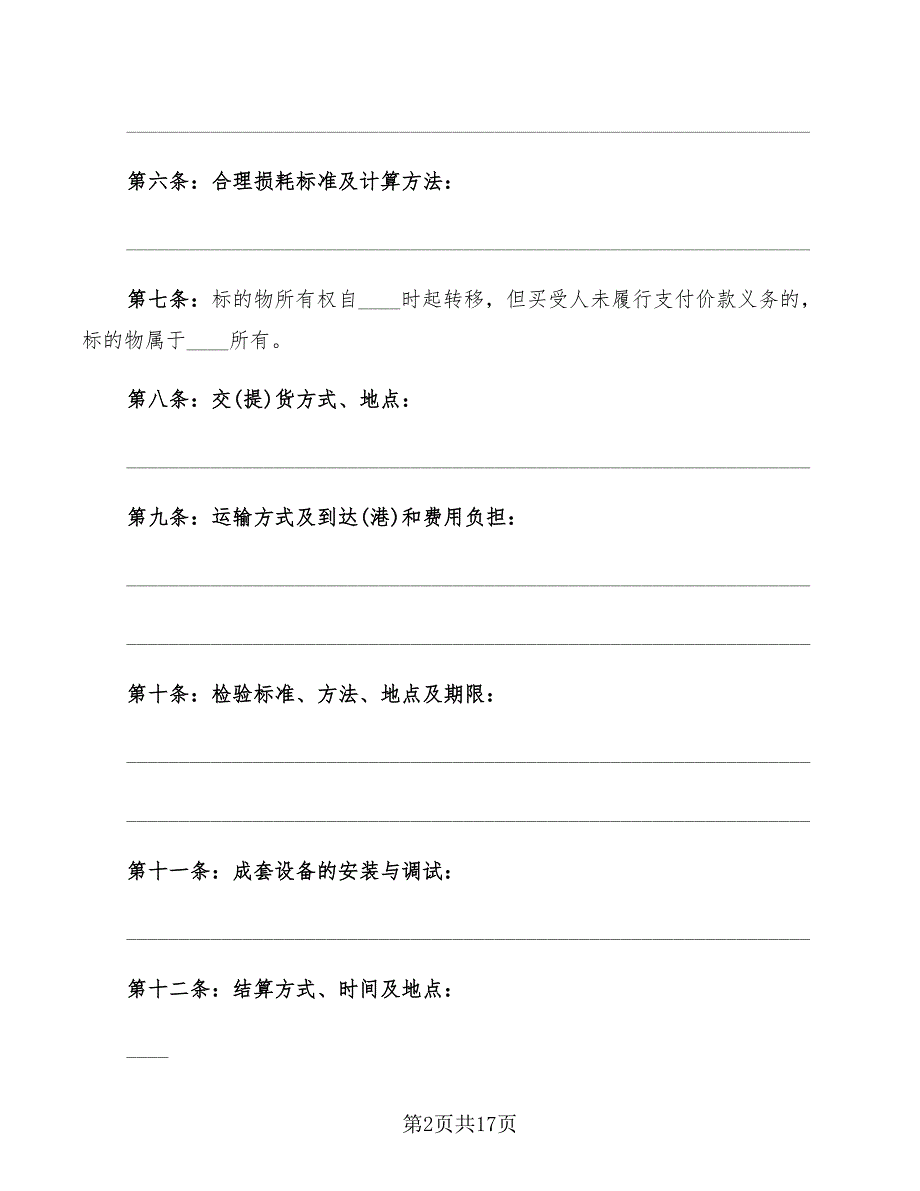 _________________________________________________________________
第六条：合理损耗标准及计算方法：
_________________________________________________________________
第七条：标的物所有权自____时起转移，但买受人未履行支付价款义务的，
标的物属于____所有。
第八条：交(提)货方式、地点：
_________________________________________________________________
第九条：运输方式及到达(港)和费用负担：
_________________________________________________________________
_________________________________________________________________
第十条：检验标准、方法、地点及期限：
_________________________________________________________________
_________________________________________________________________
第十一条：成套设备的安装与调试：
_________________________________________________________________
第十二条：结算方式、时间及地点：
____
第2页共17页